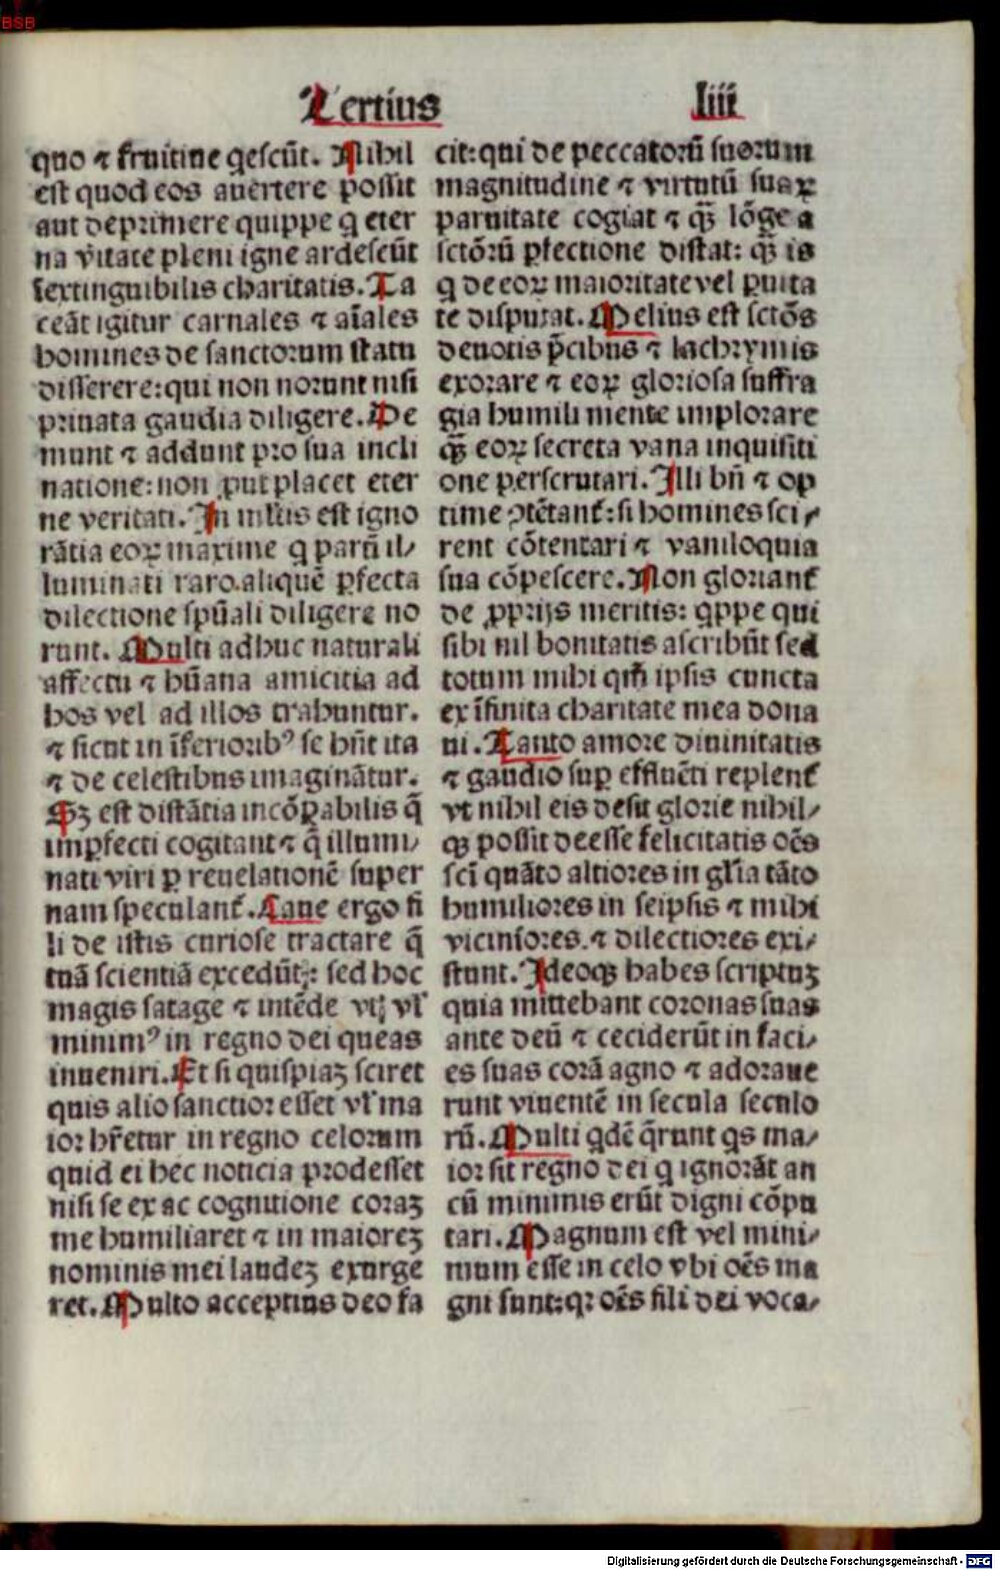 BSB
Tertius
liii
quo ⁊ fruitiue q̇escūt. Nihil
est quod eos auertere possit
aut deprimere quippe q̇ eter
na v̇itate pleni igne ardescūt
īextinguibilis charitatis. Ta
ceāt igitur carnales ⁊ aīales
homines de sanctorum statu
disserere: qui non norunt nisi
priuata gaudia diligere. De
munt ⁊ addunt pro sua incli
natione: non ꝓut placet eter
ne veritati. In multis est igno
rātia eoꝝ maxime q̇ parū il⸗
luminati raro aliquē ꝑfecta
dilectione spūali diligere no
runt. Multi adhuc naturali
affectu ⁊ hūana amicitia ad
hos vel ad illos trahuntur.
⁊ sicut in īferioribꝰ se hn̄t ita
⁊ de celestibus imaginātur.
Sꝫ est distātia incōꝑabilis q̄
imꝑfecti cogitant ⁊ q̄ illumi⸗
nati viri ꝑ reuelationē super
nam speculant᷑. Caue ergo fi
li de istis curiose tractare q̄
tuā scientiā excedūt: sed hoc
magis satage ⁊ intēde vtꝫ vl̓
minimꝰ in regno dei queas
inueniri. Et si quispiaꝫ sciret
quis alio sanctior esset vl̓ ma
ior hr̄etur in regno celorum
quid ei hec noticia prodesset
nisi se ex ac cognitione coraꝫ
me humiliaret ⁊ in maioreꝫ
nominis mei laudeꝫ exurge
ret. Multo acceptius deo fa
cit: qui de peccatorū suorum
magnitudine ⁊ virtutū suaꝝ
paruitate cogiat ⁊ qꝫ̄ lōge a
sctōrū ꝑfectione distat: qꝫ̄ is
q̇ de eoꝝ maioritate vel ꝑuita
te disputat. Melius est sctōs
deuotis p̄cibus ⁊ lachrymis
exorare ⁊ eoꝝ gloriosa suffra
gia humili mente implorare
qꝫ̄ eoꝝ secreta vana inquisiti
one perscrutari. Illi bn̄ ⁊ op
time ꝯtētant᷑: si homines sci⸗
rent cōtentari ⁊ vaniloquia
sua cōpescere. Non gloriant᷑
de ꝓprijs meritis: q̇ppe qui
sibi nil bonitatis ascribūt sed
totum mihi qm̄ ipsis cuncta
ex īfinita charitate mea dona
ui. Tanto amore diuinitatis
⁊ gaudio suꝑ effluēti replent᷑
vt nihil eis desit glorie nihil⸗
qꝫ possit deesse felicitatis oēs
scī quāto altiores in gl̓ia tāto
humiliores in seipsis ⁊ mihi
viciniores. ⁊ dilectiores exi⸗
stunt. Ideoqꝫ habes scriptuꝫ
quia mittebant coronas suas
ante deū ⁊ ceciderūt in faci⸗
es suas corā agno ⁊ adoraue
runt viuentē in secula seculo
rū. Multi q̇dē q̄runt q̇s ma⸗
ior sit regno dei q̇ ignorāt an
cū minimis erūt digni cōpu
tari. Magnum est vel mini⸗
mum esse in celo vbi oēs ma
gni sunt: qꝛ oēs fili dei voca⸗
Digitalisierung gefördert durch die Deutsche Forschungsgemeinschaft - DFG